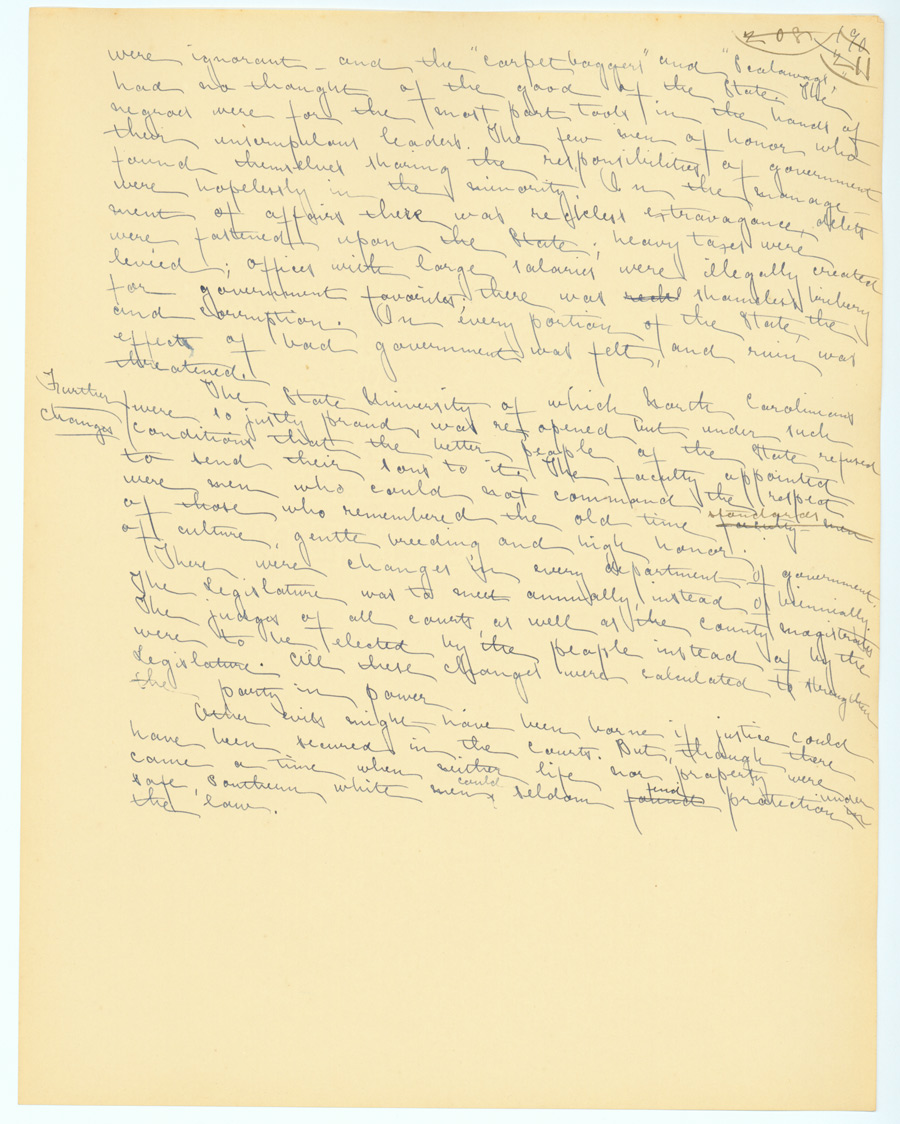 208 190
211
were ignorant – and the "carpet baggers" and "Scalawags"
had no thought of the good of the State. The
negroes were for the most part tools in the hands of
their unscrupulous leaders. The few men of honor who
found themselves sharing the responsibilities of government
were hopelessly in the minority. In the manage-
ment of affairs there was reckless extravagance, debts
were fastened upon the State; heavy taxes were
levied; offices with large salaries were illegally created
for government favorites; there was shameless bribery
and corruption. In every portion of the State, the
effects of bad government was felt, and ruin was
threatened.
Further changes
The State University of which North Carolinians
were so justly proud was reopened but under such
conditions that the better people of the State refused
to send their sons to it. The faculty appointed
were men who could not command the respect
of those who remembered the old time standards faculty – men
of culture, gentle breeding and high honor.
There were changes in every department of government.
The Legislature was to meet annually, instead of biennially.
The judges of all courts as well as the county magistrates
were to be elected by the people instead of by the
Legislature. All these changes were calculated to strengthen
the party in power
Other evils might have been borne if justice could
have been secured in the courts. But, though there
came a time when neither life nor property were
safe, Southern white men could seldom find found protection under in
the law.